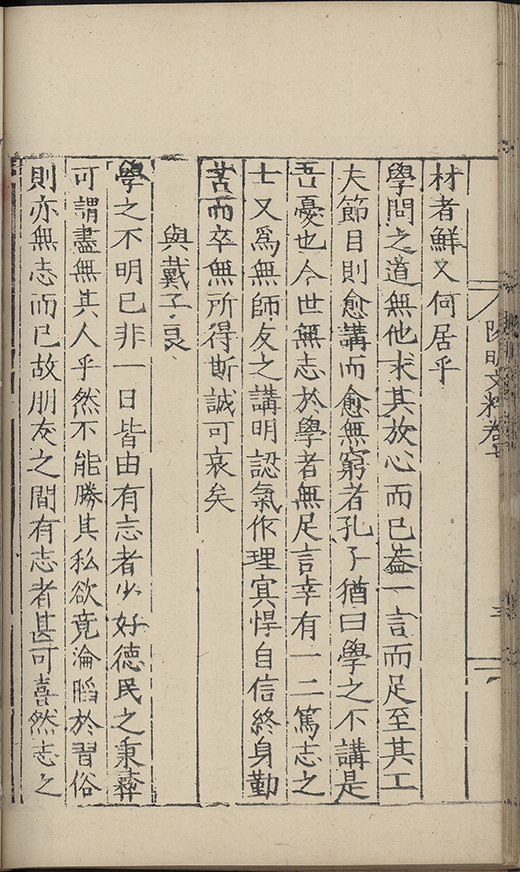 陽明文粹卷七
三
材者鮮又何居乎
學問之道無他求其放心而已蓋一言而足至其工
夫節目則愈講而愈無窮者孔子猶曰學之不講是
吾憂也今世無志於學者無足言幸有一二篤志之
士又爲無師友之講明認氣作理冥悍自信終身勤
苦而卒無所得斯誠可哀矣
與戴子良
學之不明已非一日皆由有志者少好德民之秉彝
可謂盡無其人乎然不能勝其私欲竟淪䧟於習俗
則亦無志而已故朋友之間有志者甚可喜然志之